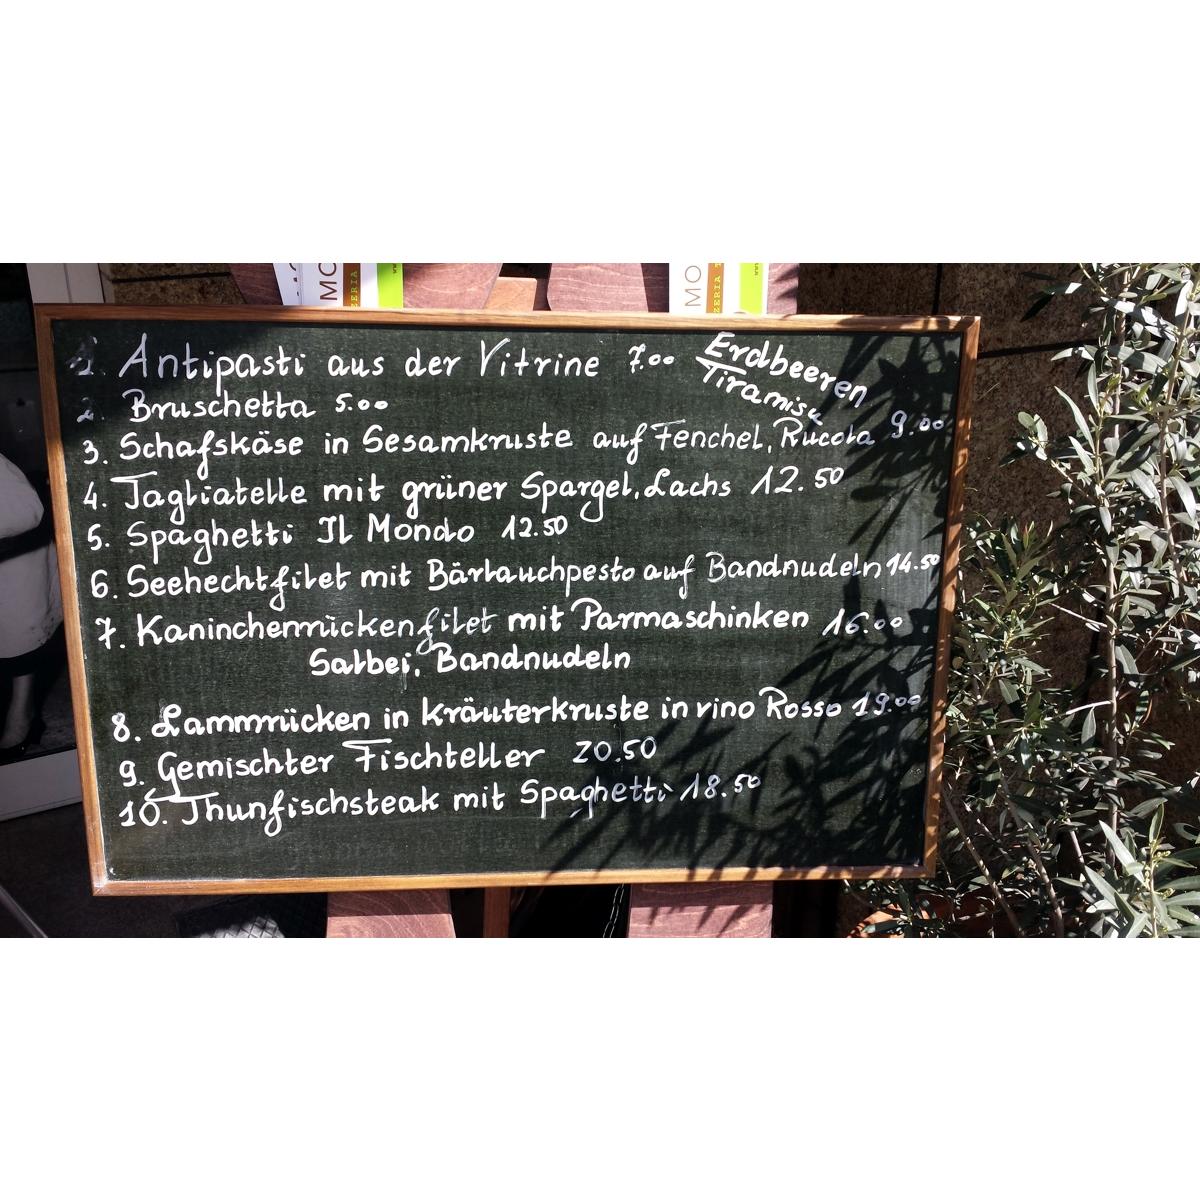 MO
ZERIA
MO
ZERIA
1. Antipasti aus der Vitrine 7.00
Erdbeeren
Tiramisu
2. Bruschetta 5.00
3. Schafskäse in Sesamkruste auf Fenchel, Rucola 9.00
4. Tagliatelle mit grüner Spargel, Lachs 12.50
5. Spaghetti Il Mondo 12.50
6. Seehechtfilet mit Bärlauchpesto auf Bandnudeln 14.50
7. Kaninchenrückenfilet mit Parmaschinken 16.00
Salbei, Bandnudeln
8. Lammrücken in Kräuterkruste in vino Rosso 19.00
9. Gemischter Fischteller 20.50
10. Thunfischsteak mit Spaghetti 18.50